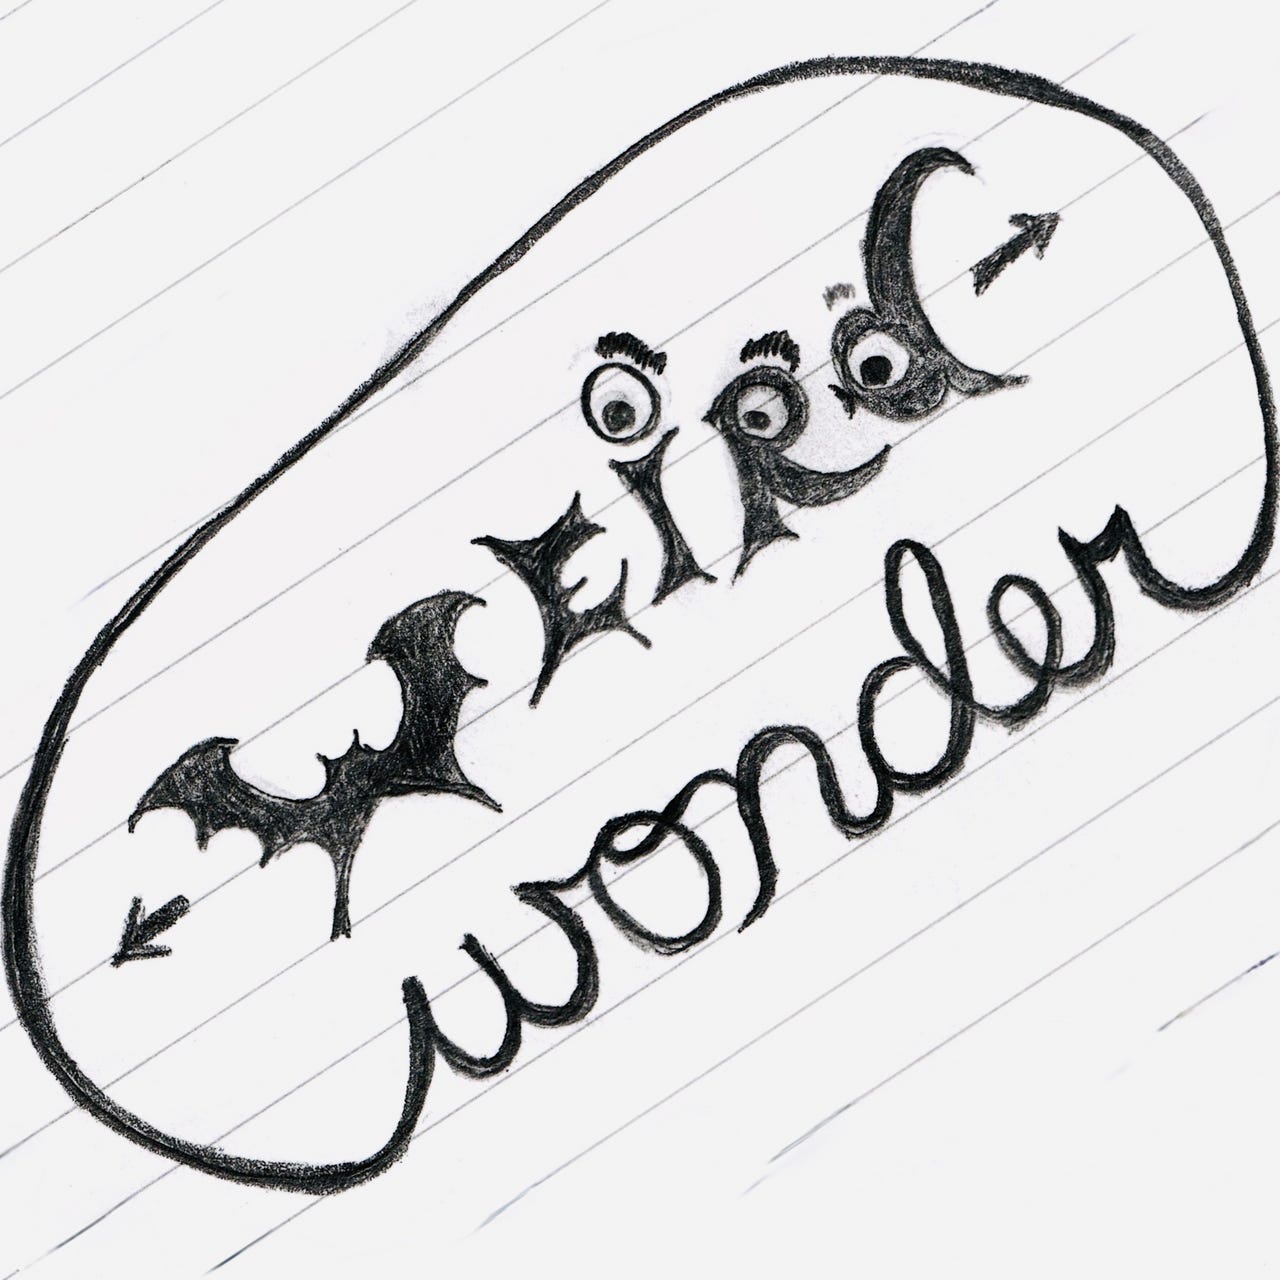 WEiRd
wonder